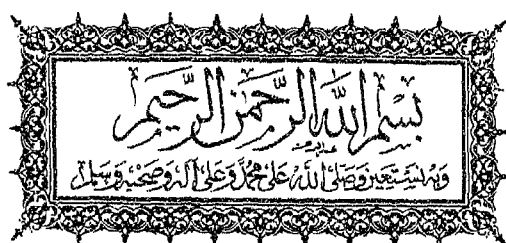 بِسْمِ اللهِ الرَّحْمَنِ الرَّحِيمِ
وَبِهِ نَسْتَعِينُ وَصَلَّى اللهُ عَلَى مُحَمَّدٍ وَعَلَى آلِهِ وَصَحْبِهِ وَسَلَّمَ